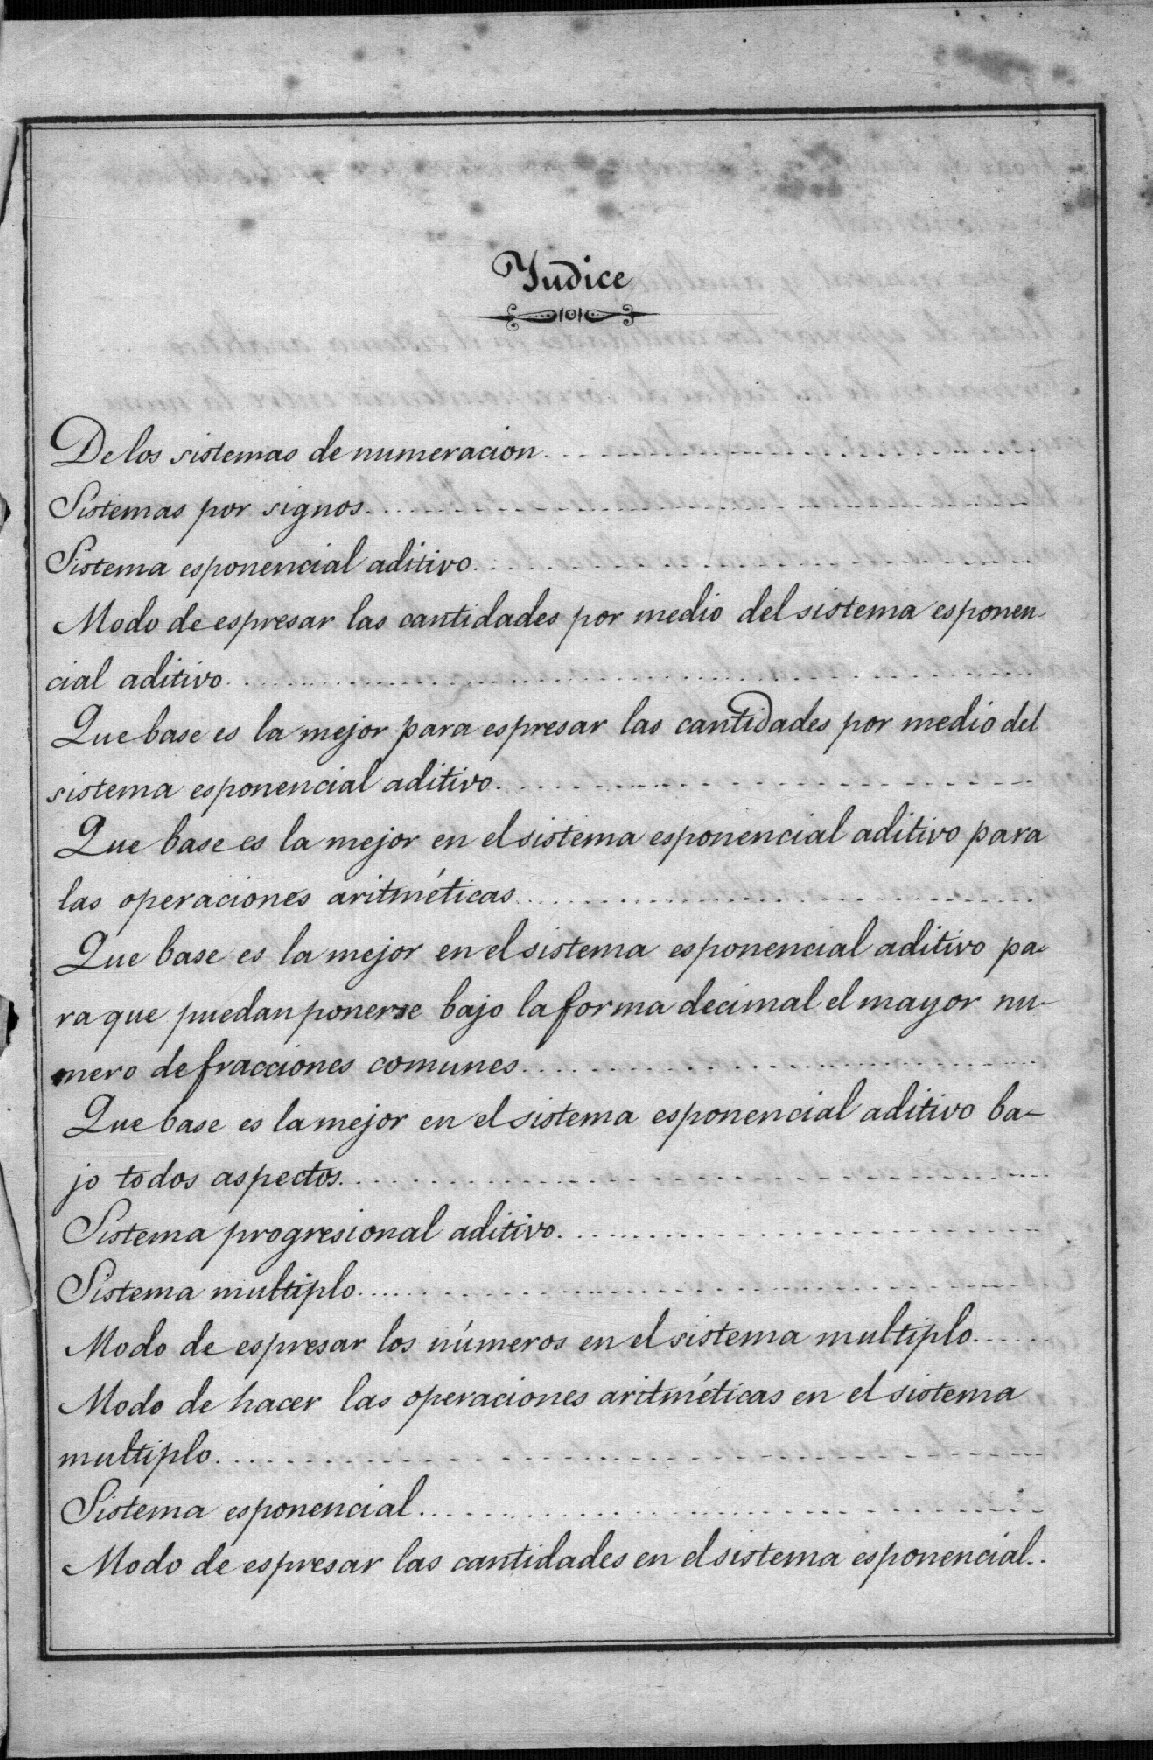 Yndice
De los sistemas de numeracion
Sistemas por signos
Sistema esponencial aditivo
Modo de espresar las cantidades por medio del sistema esponen
cial aditivo
Que base es la mejor para espresar las cantidades por medio del
sistema esponencial aditivo
Que base es la mejor en el sistema esponencial aditivo para
las operaciones aritméticas
Que base es la mejor en el sistema esponencial aditivo pa-
ra que puedan ponerse bajo la forma decimal el mayor nu-
mero de fracciones comunes
Que base es la mejor en el sistema esponencial aditivo ba-
jo todos aspectos
Sistema progresional aditivo
Sistema multiplo
Modo de espresar los números en el sistema multiplo
Modo de hacer las operaciones aritméticas en el sistema
multiplo
Sistema esponencial
Modo de espresar las cantidades en el sistema esponencial